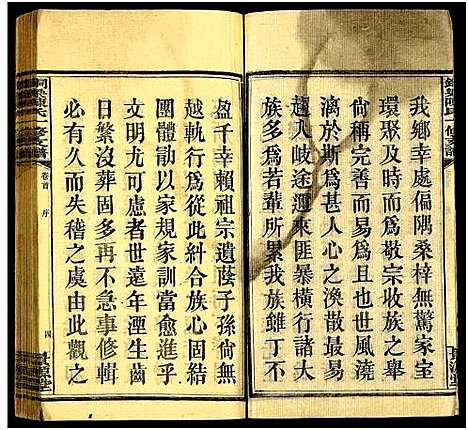 我鄉幸處偏隅桑梓無驚家室
環聚及時而爲敬宗收族之舉
尙稱完善而易爲也世風澆
漓於斯爲甚人心之渙散最易
入岐途邇來匪暴橫行諸大
族無不爲若輩所累我族雖丁不
盈千幸賴祖宗遺蔭子孫尙無
越軌行爲從此糾合族心固結
團體勖以家規家訓富愈進乎
文明尤可慮者世遠年湮生齒
日繁沒葬固多再不急事修輯
必有久而失稽之虞由此觀之
卷首
序
四